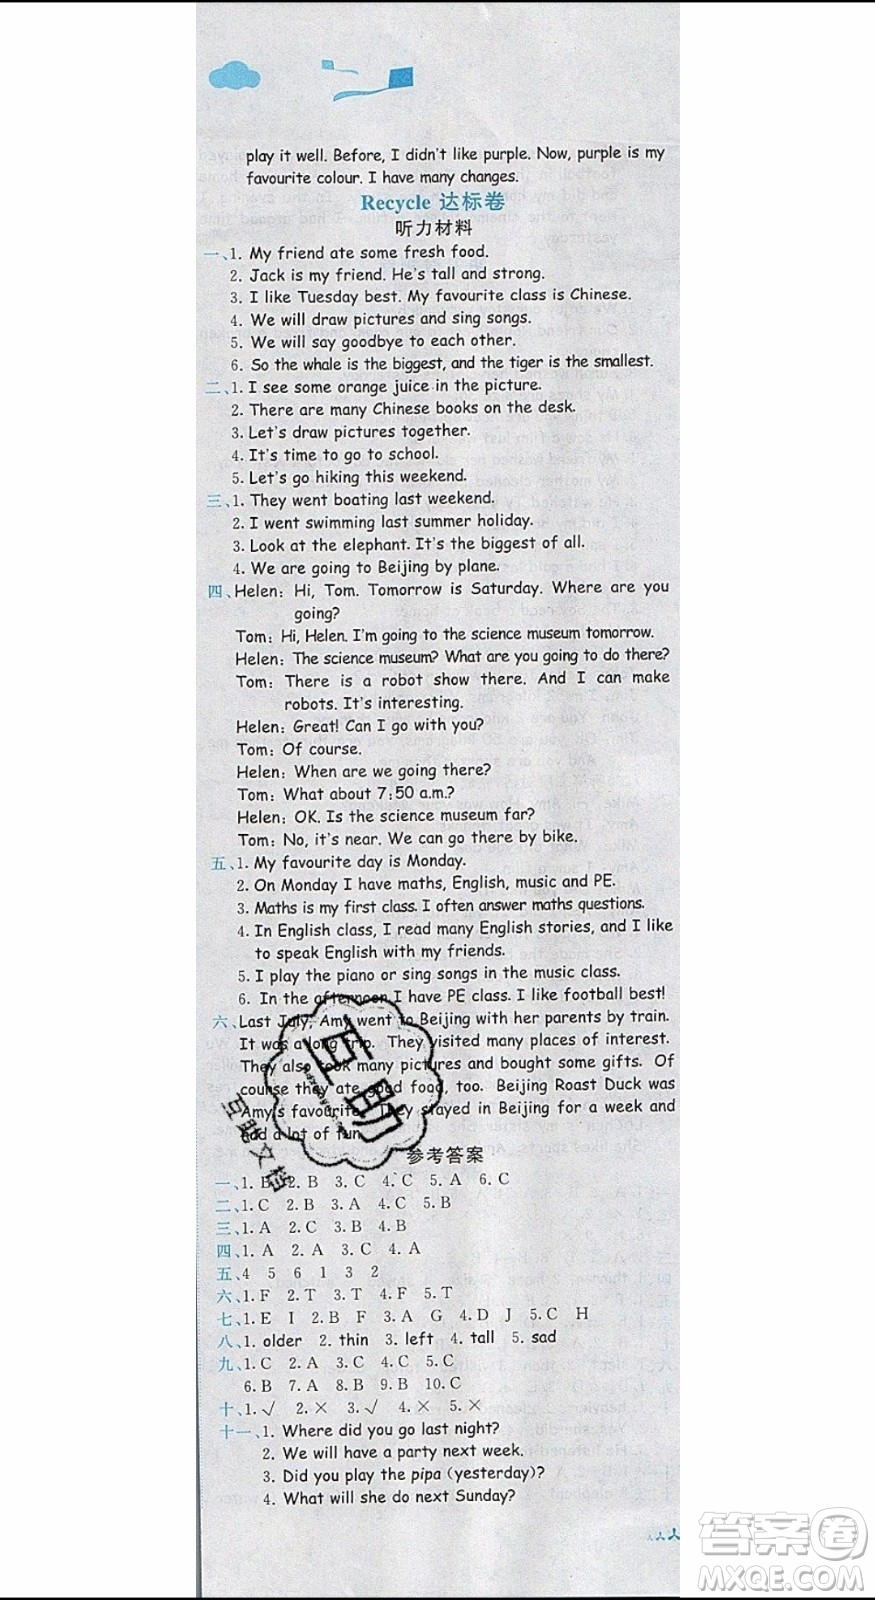 play it well. Before, I didn't like purple. Now, purple is my
favourite colour. I have many changes.
Recycle 达标卷
听力材料
一、1. My friend ate some fresh food.
2. Jack is my friend. He's tall and strong.
3. I like Tuesday best. My favourite class is Chinese.
4. We will draw pictures and sing songs.
5. We will say goodbye to each other.
6. So the whale is the biggest, and the tiger is the smallest.
二、1. I see some orange juice in the picture.
2. There are many Chinese books on the desk.
3. Let's draw pictures together.
4. It's time to go to school.
5. Let's go hiking this weekend.
三、1. They went boating last weekend.
2. I went swimming last summer holiday.
3. Look at the elephant. It's the biggest of all.
4. We are going to Beijing by plane.
四、Helen: Hi, Tom. Tomorrow is Saturday. Where are you
going?
Tom: Hi, Helen. I'm going to the science museum tomorrow.
Helen: The science museum? What are you going to do there?
Tom: There is a robot show there. And I can make
robots. It's interesting.
Helen: Great! Can I go with you?
Tom: Of course.
Helen: When are we going there?
Tom: What about 7:50 a.m.?
Helen: OK. Is the science museum far?
Tom: No, it's near. We can go there by bike.
五、1. My favourite day is Monday.
2. On Monday I have maths, English, music and PE.
3. Maths is my first class. I often answer maths questions.
4. In English class, I read many English stories, and I like
to speak English with my friends.
5. I play the piano or sing songs in the music class.
6. In the afternoon I have PE class. I like football best!
六、Last July, Amy went to Beijing with her parents by train.
It was a long trip. They visited many places of interest.
They also took many pictures and bought some gifts. Of
course they ate good food, too. Beijing Roast Duck was
Amy's favourite. They stayed in Beijing for a week and
had a lot of fun.
互助
互助文档
参考答案
一、1. B 2. B 3. C 4. C 5. A 6. C
二、1. C 2. B 3. A 4. B 5. A
三、1. A 2. C 3. B 4. B
四、1. A 2. A 3. C 4. A
五、4 5 6 1 3 2
六、1. F 2. T 3. T 4. F 5. T
七、1. E I 2. B F 3. A G 4. D J 5. C H
八、1. older 2. thin 3. left 4. tall 5. sad
九、1. C 2. A 3. C 4. C 5. C
6. B 7. A 8. B 9. B 10. C
十、1. √ 2. × 3. √ 4. × 5. ×
十一、1. Where did you go last night?
2. We will have a party next week.
3. Did you play the pipa (yesterday)?
4. What will she do next Sunday?
答案卷
MXQE.COM